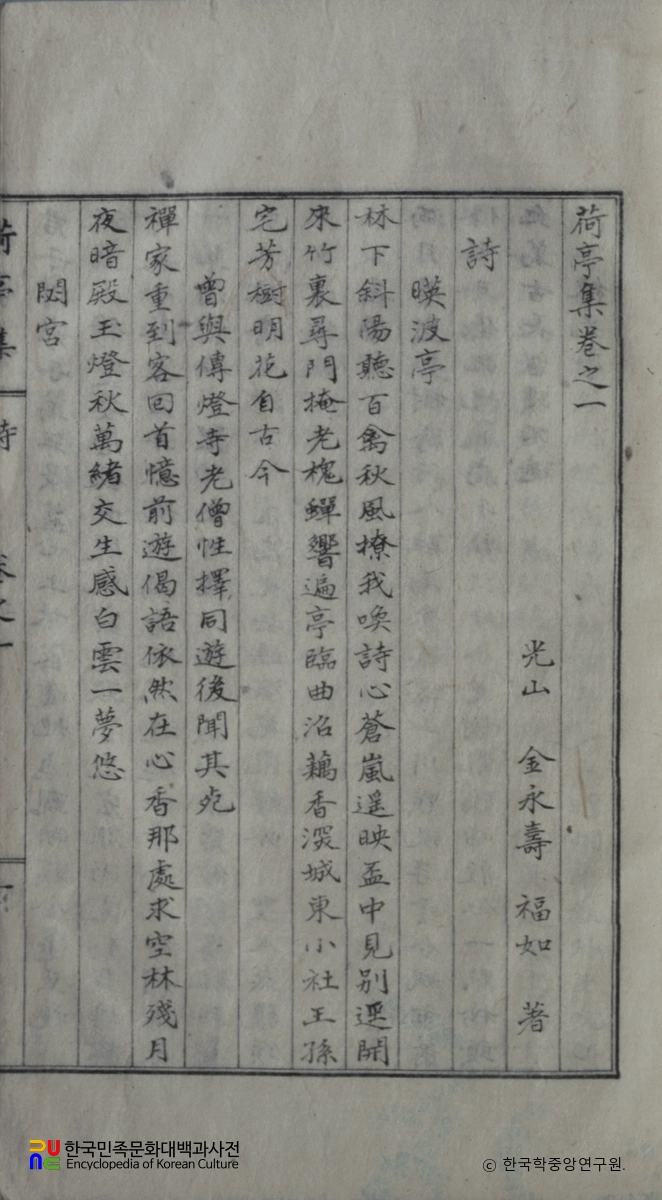 荷亭集卷之一
光山 金永壽 福如 著
詩
暎波亭
林下斜陽聽百禽秋風撩我喚詩心蒼嵐遥映盃中見別逕開
來竹裏尋門掩老槐蟬響遍亭臨曲沼藕香深城東小社王孫
宅芳樹明花自古今
曾與傳燈寺老僧性擇同遊後聞其死
禪家重到客回首憶前遊偈語依然在心香那處求空林殘月
夜暗殿玉燈秋萬緒交生感白雲一夢悠
閟宮
荷亭集 詩 卷之一 一
한국민족문화대백과사전
Encyclopedia of Korean Culture
© 한국학중앙연구원.